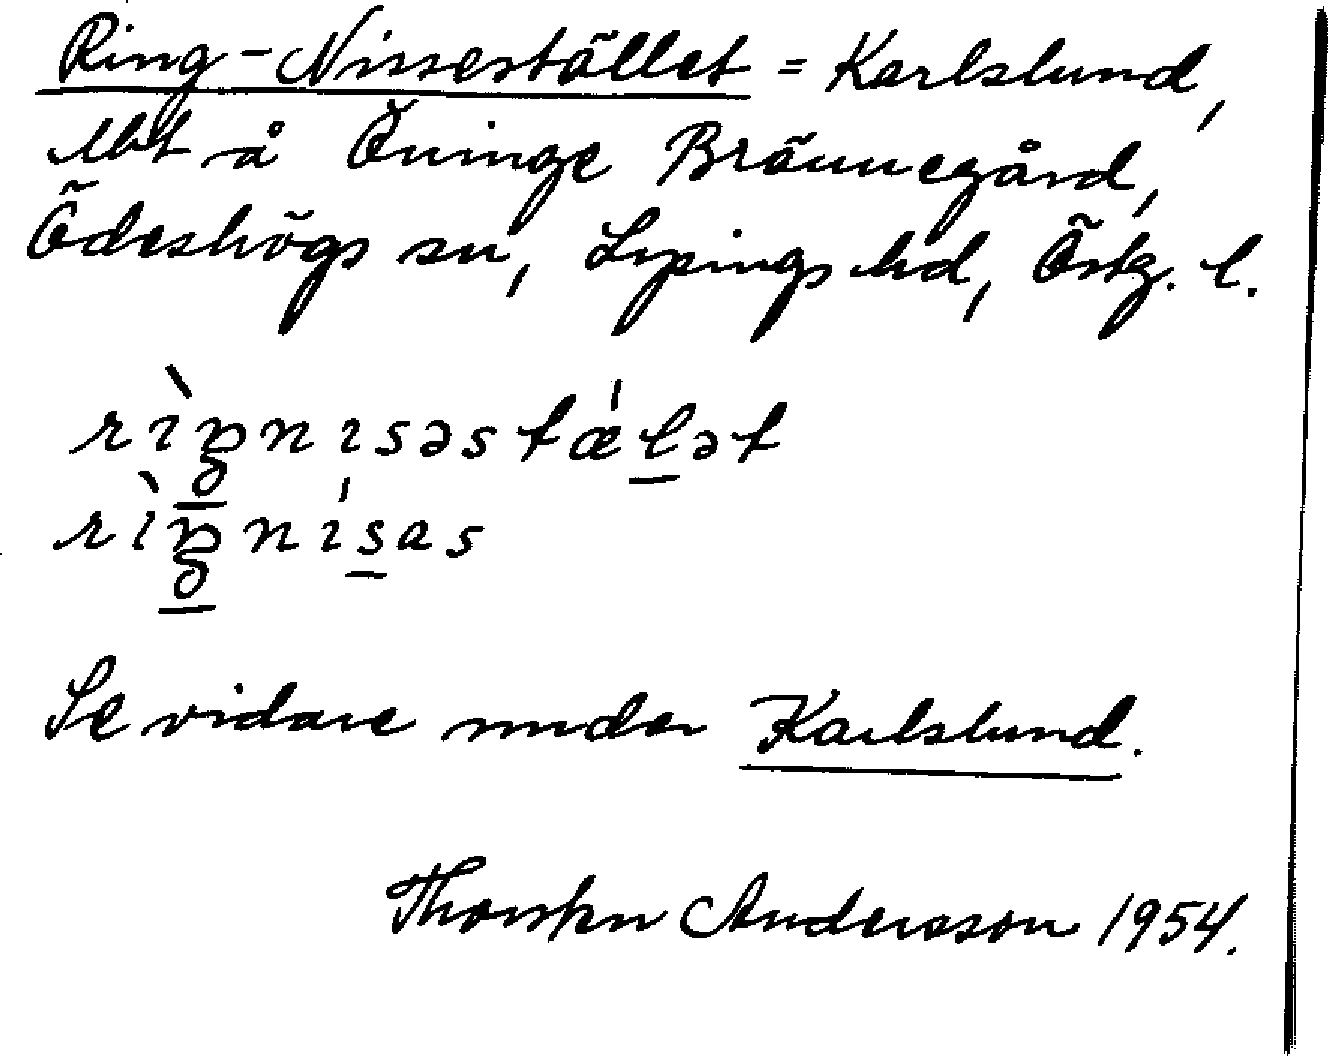 Ring-Nissestället = Karlslund,
lht å Öninge Brännegård,
Ödeshögs sn, Lysings hd, Östg. l.
rìŋnɪsəstǽlət
rìŋnísas
Se vidare under Karlslund.
Thorsten Andersson 1954.